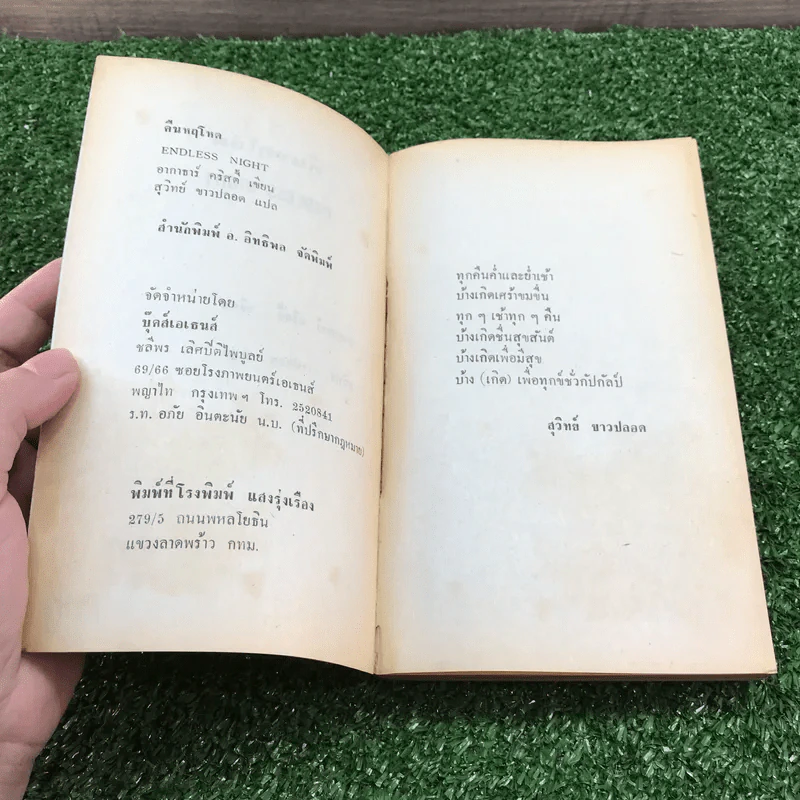 คืนหฤโหด
ENDLESS NIGHT
อากาธาร์ คริสตี้ เขียน
สุวิทย์ ขาวปลอด แปล
สำนักพิมพ์ อ. อิทธิพล จัดพิมพ์
จัดจำหน่ายโดย
บุ๊คส์เอเธนส์
ชลีพร เลิศปีติไพบูลย์
69/66 ซอยโรงภาพยนตร์เอเธนส์
พญาไท กรุงเทพ ฯ โทร. 2520841
ร.ท. อภัย อินตะนัย น.บ. (ที่ปรึกษากฎหมาย)
พิมพ์ที่โรงพิมพ์ แสงรุ่งเรือง
279/5 ถนนพหลโยธิน
แขวงลาดพร้าว กทม.
ทุกคืนค่ำและย่ำเช้า
บ้างเกิดเศร้าขมขื่น
ทุก ๆ เช้าทุก ๆ คืน
บ้างเกิดชื่นสุขสันต์
บ้างเกิดเพื่อมีสุข
บ้าง (เกิด) เพื่อทุกข์ชั่วกัปกัลป์
สุวิทย์ ขาวปลอด